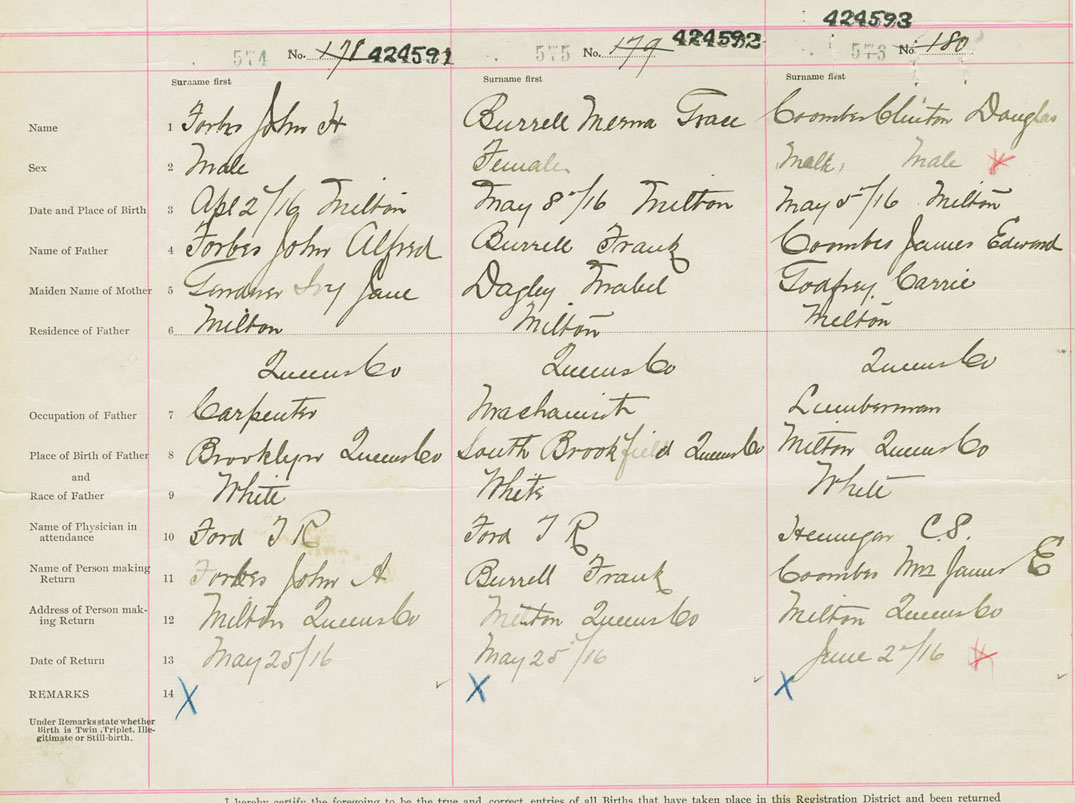 424593
574 No. 178 424591 575 No. 179 424592 573 No 180
Surname first Surname first Surname first
Name 1 Forbes John H Burrell Merna Grace Coombes Clinton Douglas
Sex 2 Male Female Male, Male
Date and Place of Birth 3 Apl 2/16 Milton May 8/16 Milton May 5/16 Milton
Name of Father 4 Forbes John Alfred Burrell Frank Coombes James Edward
Maiden Name of Mother 5 Ivy Jane Dagley Mabel Godfrey Carrie
Residence of Father 6 Milton Milton Milton
Queens Co Queens Co Queens Co
Occupation of Father 7 Carpenter Lumberman
Place of Birth of Father 8 Brooklyn Queens Co South Brookfield Queens Co Milton Queens Co
and
Race of Father 9 White White White
Name of Physician in
attendance 10 Ford T R Ford T R Hennigar C.S.
Name of Person making
Return 11 Forbes John A Burrell Frank Coombes Mrs James E
Address of Person mak-
ing Return 12 Milton Queens Co Milton Queens Co Milton Queens Co
Date of Return 13 May 25/16 May 25/16 June 2/16
REMARKS 14 X X X
Under Remarks state whether
Birth is Twin, Triplet, Ille-
gitimate or Still-birth.
I hereby certify the foregoing to be the true and correct entries of all Births that have taken place in this Registration District and been returned